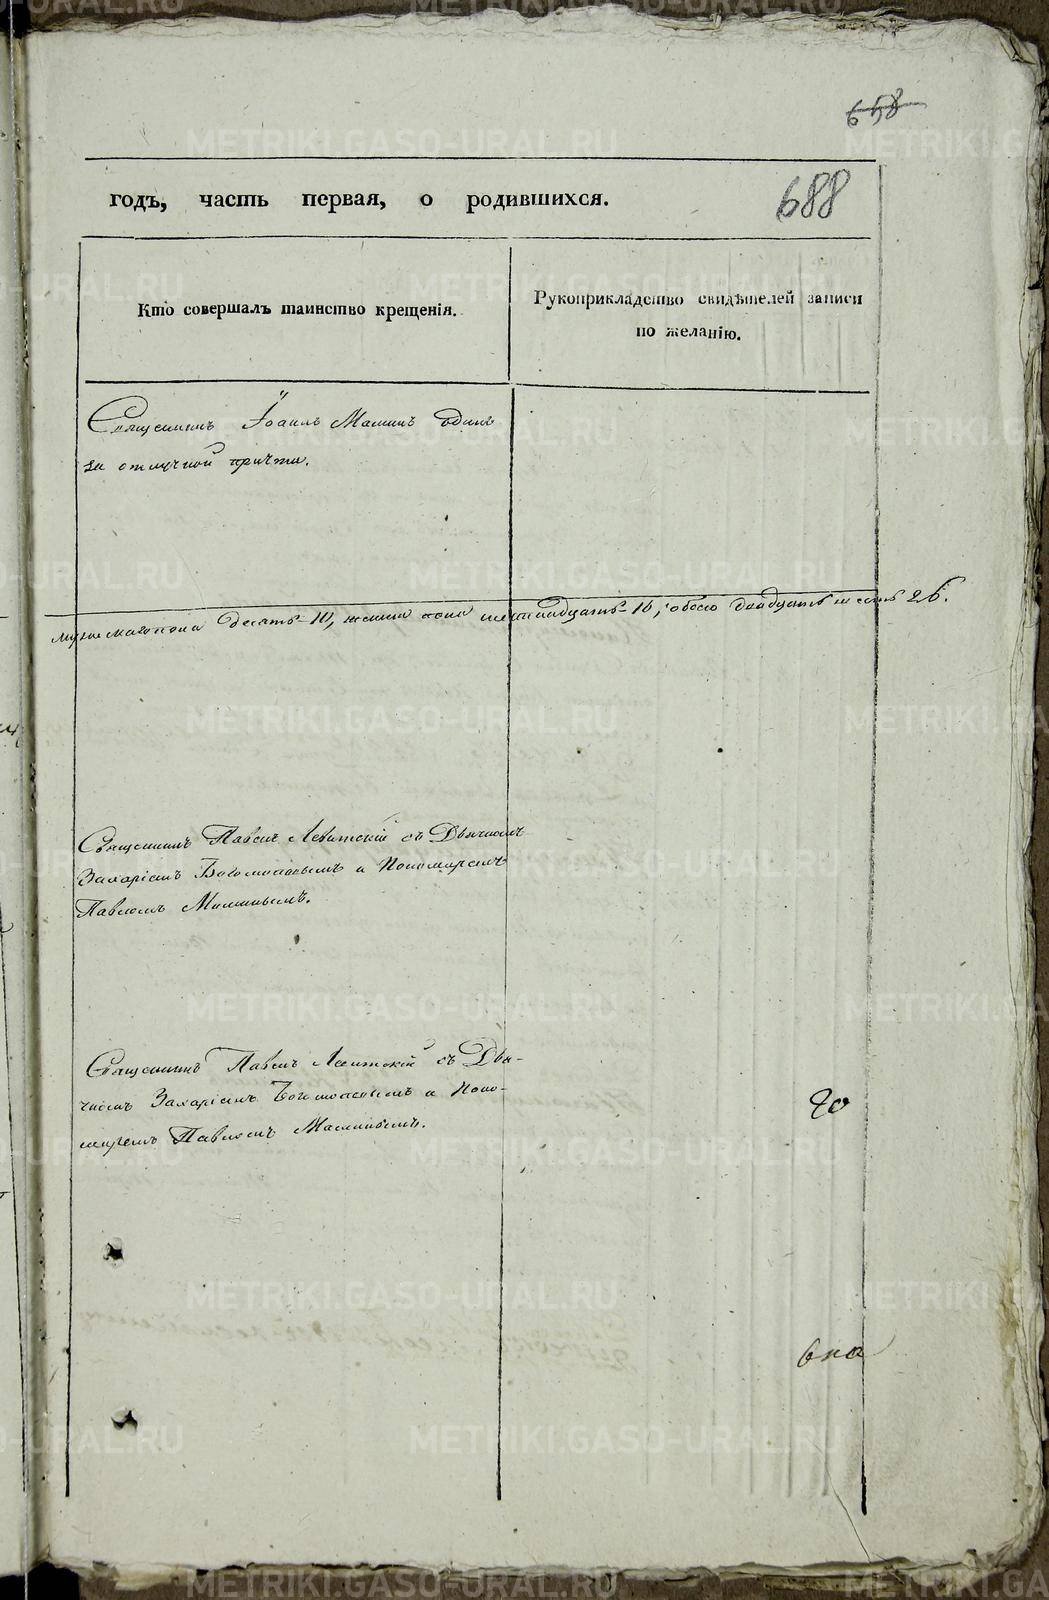 658
годъ, часть первая, о родившихся.
688
Кто совершалъ таинство крещенія.
Рукоприкладство свидѣтелей записи
по желанію.
Священникъ Іоаннъ Маминъ одинъ
за отлучкой причта.
мужескаго пола десять 10, женска пола шестнадцать 16, обоего двадцать шесть 26.
Священникъ Павелъ Левитскій съ Дьячкомъ
Захаріемъ Богомоловымъ и Пономаремъ
Павломъ Маминымъ.
Священникъ Павелъ Левитскій съ Дья-
чкомъ Захаріемъ Богомоловымъ и Поно-
маремъ Павломъ Маминымъ.
20
METRIKI.GASO-URAL.RU